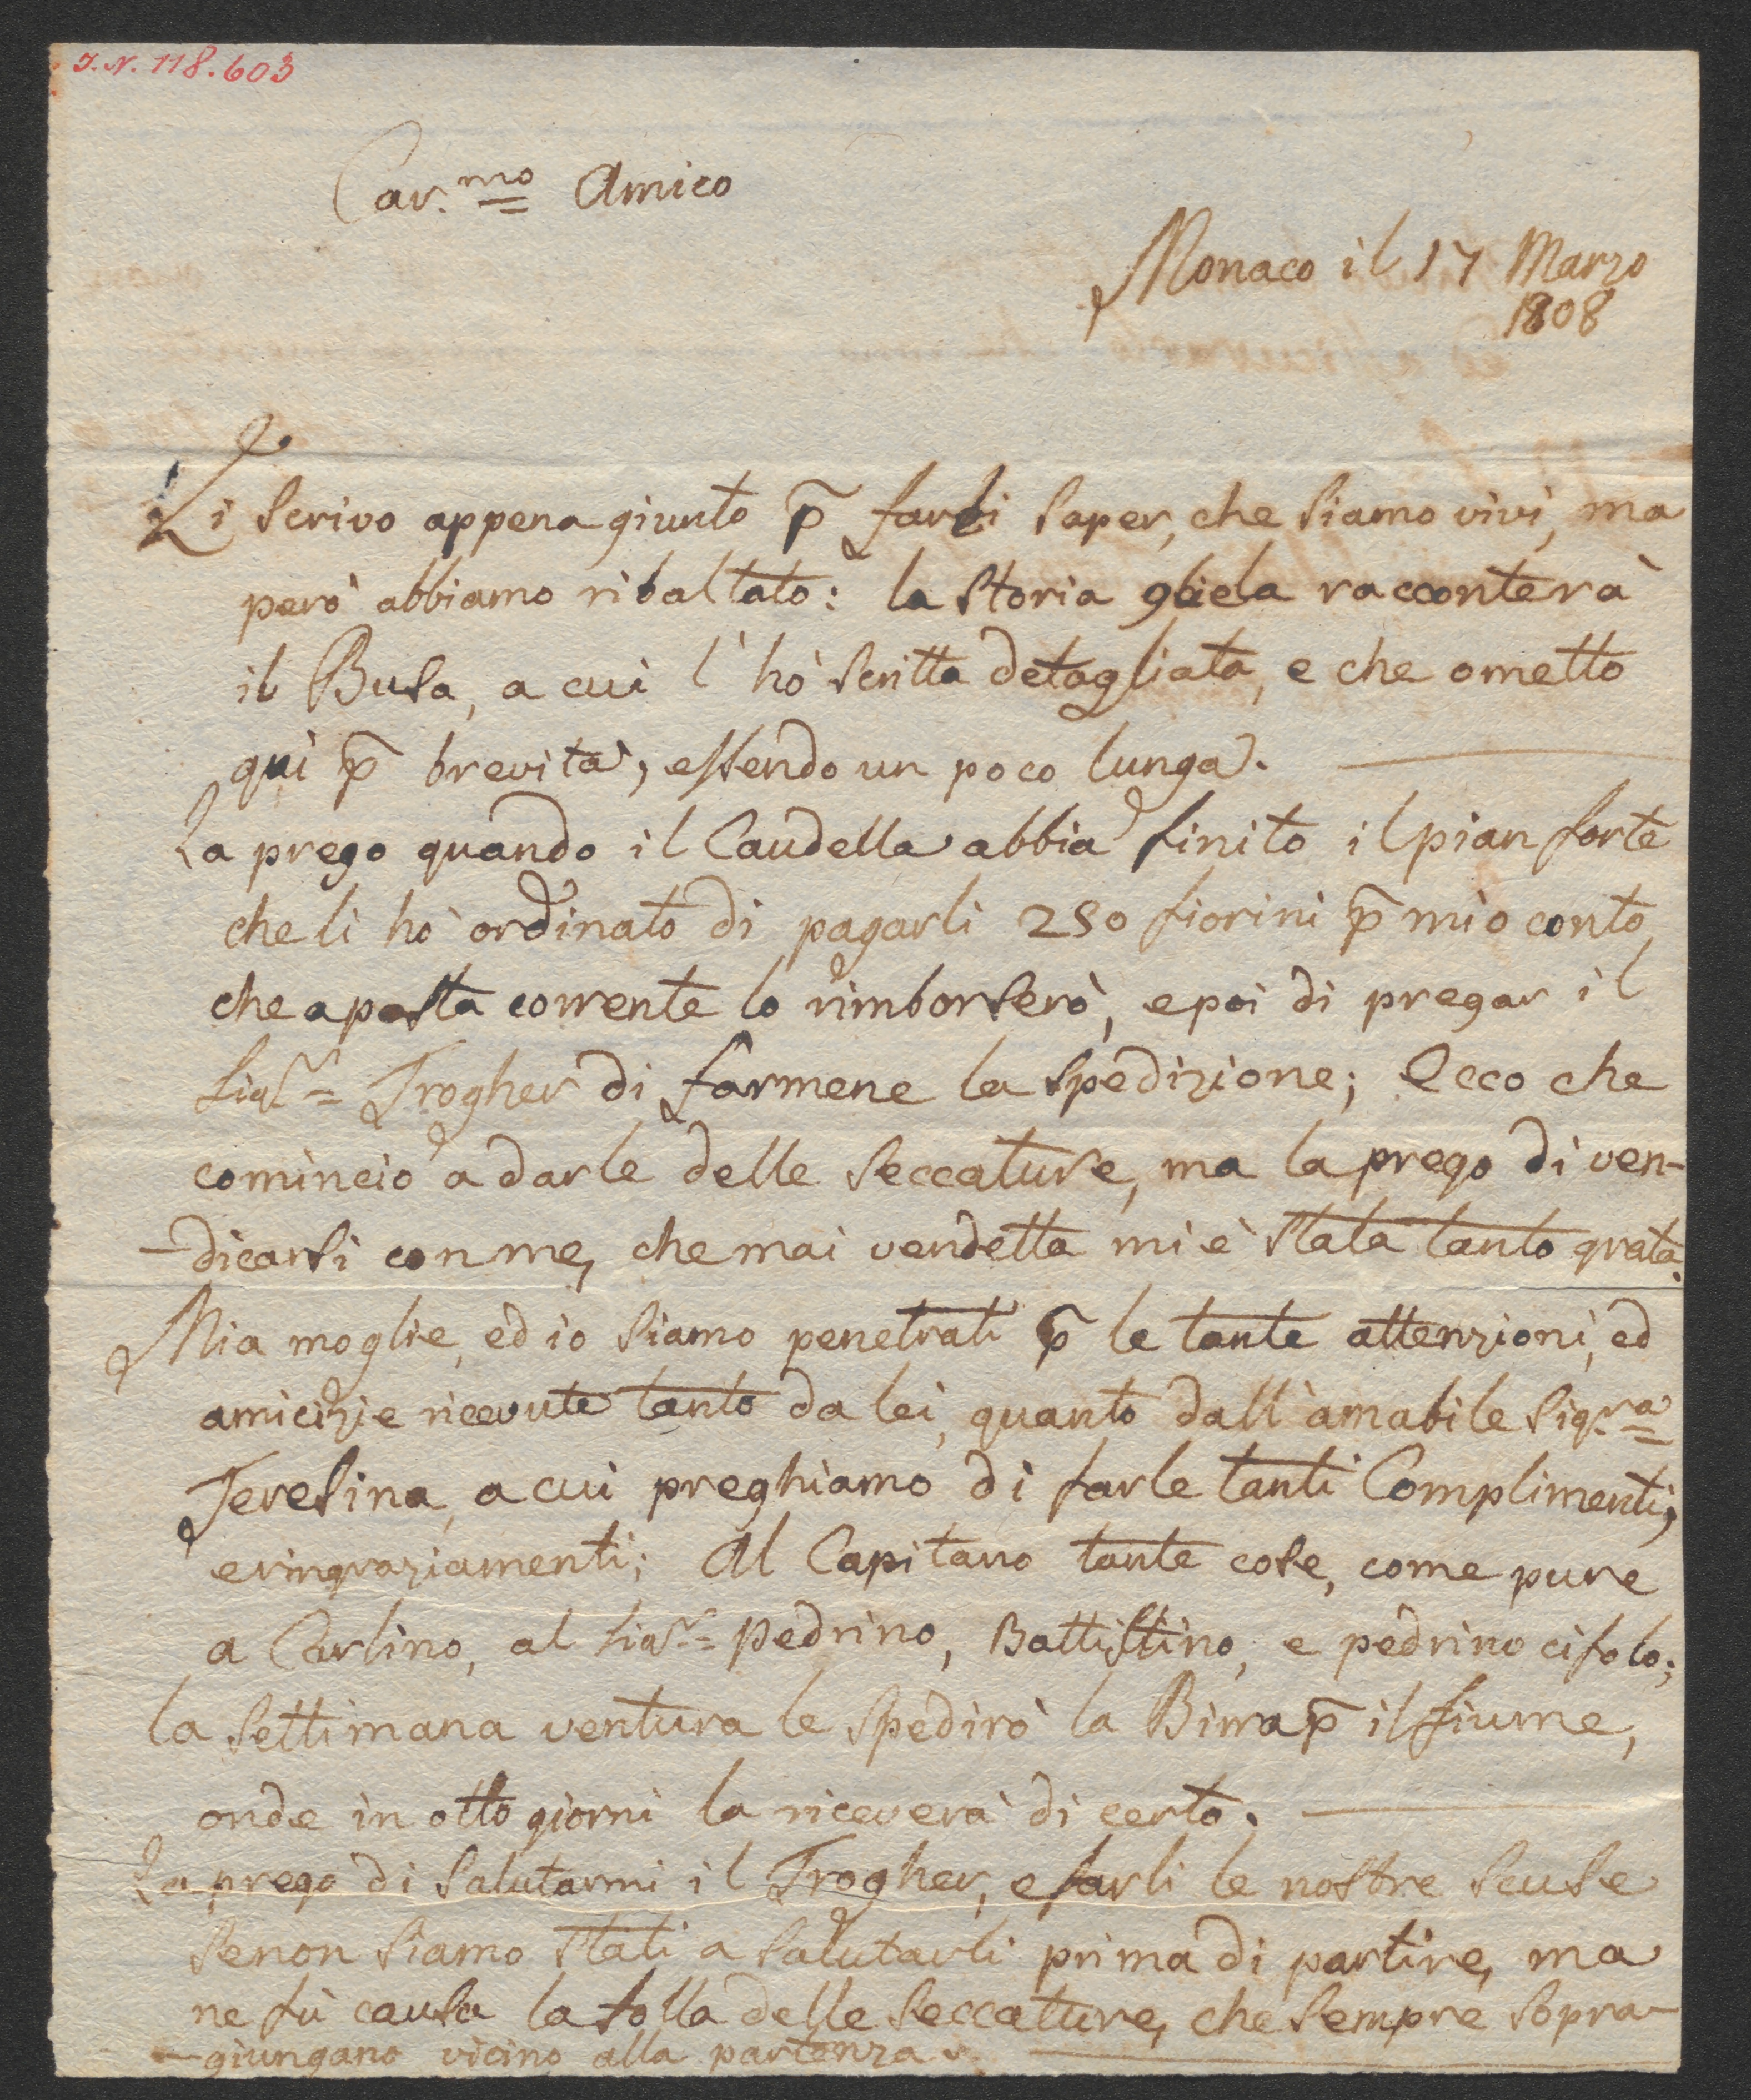 I.N. 118.603
Car.mo Amico
Monaco il 17 Marzo
1808
Li scrivo appena giunto p̄ farli saper, che siamo vivi, ma
però abbiamo ribaltato: la storia gliela racconterà
il Busa, a cui l'hò scritta detagliata, e che ometto
quì p̄ brevità, essendo un poco lunga.
La prego quando il Caudella abbia finito il pian forte
che li hò ordinato di pagarli 250 fiorini p̄ mio conto,
che a posta corrente lo rimborserò, e poi di pregar il
Sigr= Trogher di farmene la spedizione; Ecco che
comincio a darle delle seccature, ma la prego di ven-
-dicarsi con me, che mai vendetta mi è stata tanto grata.
Mia moglie, ed io siamo penetrati p̄ le tante attenzioni, ed
amicizie ricevute tanto da lei, quanto dall'amabile Sigra=
Teresina, a cui preghiamo di farle tanti Complimenti,
e ringraziamenti; Al Capitano tante cose, come pure
a Carlino, al Sigr= Pedrino, Battistino, e pedrino cifolo;
la settimana ventura le spedirò la Birra p̄ il fiume,
onde in otto giorni la riceverà di certo.
La prego di salutarmi il Trogher, e farli le nostre scuse
se non siamo stati a salutarli prima di partire, ma
ne fù causa la folla delle seccature, che sempre sopra-
-giungano vicino alla partenza.